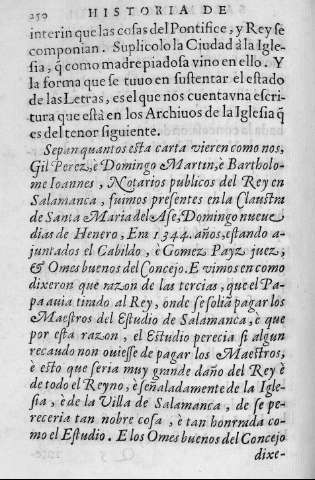 250 HISTORIA DE
interin que las cosas del Pontifice, y Rey se
componian. Suplicolo la Ciudad à la Igle-
sia, q̃ como madre piadosa vino en ello. Y
la forma que se tuuo en sustentar el estado
de las Letras, es el que nos cuenta vna escri-
tura que està en los Archiuos de la Iglesia q̃
es del tenor siguiente.
Sepan quantos esta carta vieren como nos,
Gil Perez, è Domingo Martin, è Bartholo-
me Ioannes, Notarios publicos del Rey en
Salamanca, fuimos presentes en la Claustra
de Santa Maria del Ase, Domingo nueue
dias de Henero, Em 1344. años, estando a-
juntados el Cabildo, è Gomez Payz juez,
& Omes buenos del Concejo. E vimos en como
dixeron que razon de las tercias, que el Pa-
pa auia tirado al Rey, onde se solia pagar los
Maestros del Estudio de Salamanca, è que
por esta razon, el Estudio perecia si algun
recaudo non ouiesse de pagar los Maestros,
è esto que seria muy grande daño del Rey è
de todo el Reyno, è señaladamente de la Igle-
sia, è de la Villa de Salamanca, de se pe-
receria tan nobre cosa, è tan honrrada co-
mo el Estudio. E los Omes buenos del Concejo
dixe-